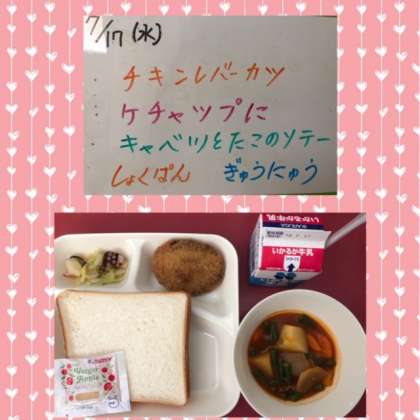 7/17(水)
チキンレバーカツ
ケチャップに
キャベツとたこのソテー
しょくぱん ぎゅうにゅう
いかるが牛乳
いかるが牛乳